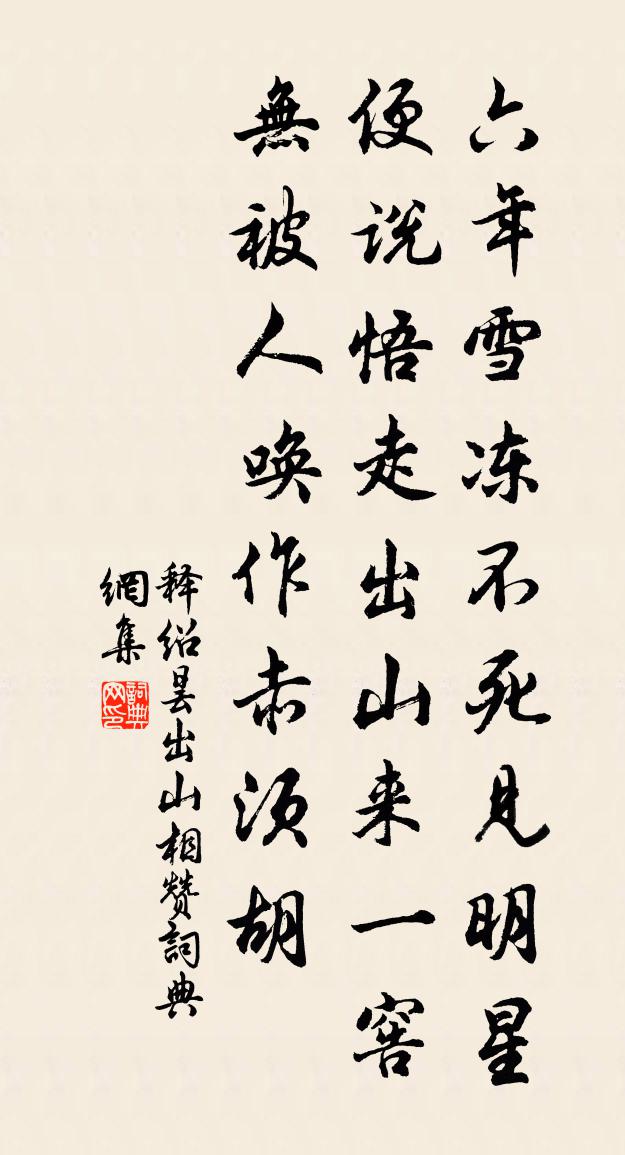 六年雪冻不死見明星
便说悟走出山来一窖
無被人唤作赤须胡
释绍昙出山相赞詞典
網集
詞典网印